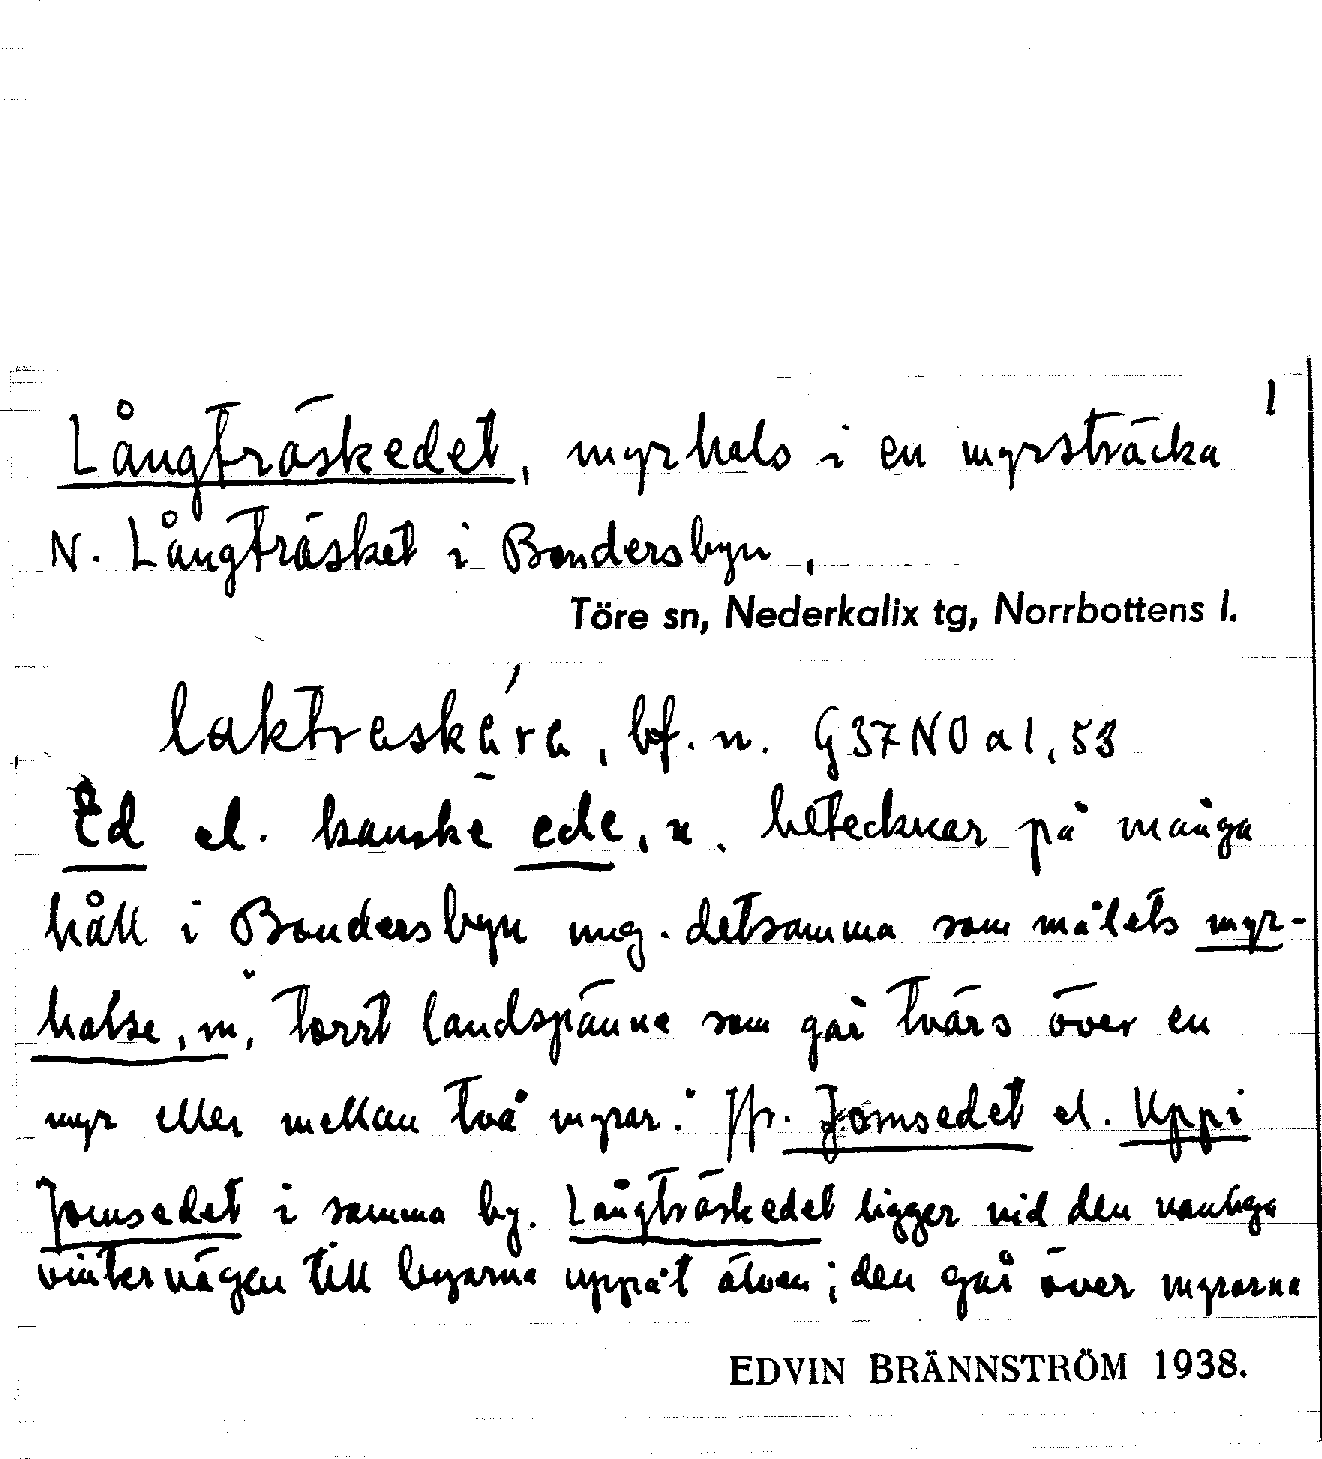 1
Långträskedet, myrhals i en myrsträcka
N. Långträsket i Bondersbyn,
Töre sn, Nederkalix tg, Norrbottens l.
laktraskära, bf. n. G 37 NO a 1, 53
Ed el. kanske ede, n. betecknar på många
håll i Bondersbyn ung. detsamma som målets myr-
halse, m, torrt landspänne som går tvärs över en
myr eller mellan två myrar. Jfr. Jomsedet el. Uppi
Jomsedet i samma by. Långträskedet ligger vid den vanliga
vintervägen till byarna uppåt älven; den går över myrarna
EDVIN BRÄNNSTRÖM 1938.